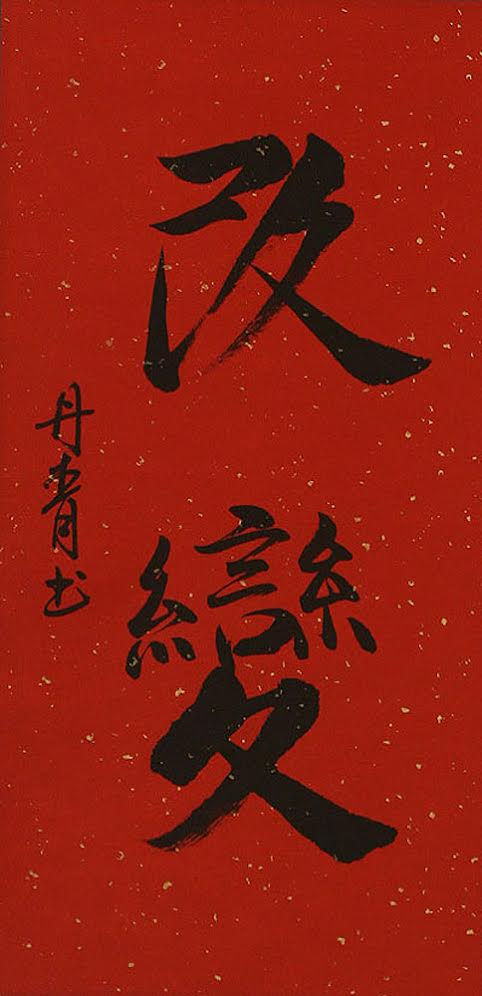 改變
丹青书